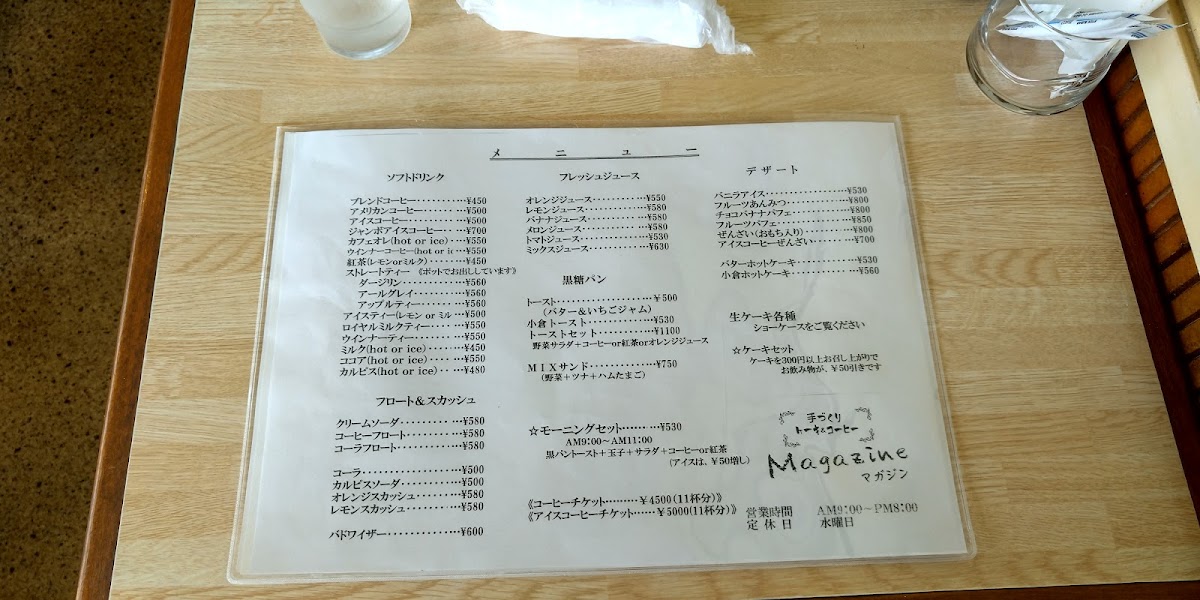 メニュー
ソフトドリンク
ブレンドコーヒー…………¥450
アメリカンコーヒー………¥500
アイスコーヒー…………¥500
ジャンボアイスコーヒー…¥700
カフェオレ(hot or ice)…¥550
ウインナーコーヒー(hot or ic…¥550
紅茶(レモンorミルク)………¥450
ストレートティー 《ポットでお出ししています》
ダージリン…………¥560
アールグレイ…………¥560
アップルティー…………¥560
アイスティー(レモン or ミル…¥500
ロイヤルミルクティー……¥550
ウインナーティー…………¥550
ミルク(hot or ice)………¥450
ココア(hot or ice)………¥550
カルピス(hot or ice)……¥480
フロート&スカッシュ
クリームソーダ…………¥580
コーヒーフロート…………¥580
コーラフロート…………¥580
コーラ………………¥500
カルピスソーダ…………¥500
オレンジスカッシュ………¥580
レモンスカッシュ…………¥580
バドワイザー……………¥600
フレッシュジュース
オレンジジュース…………¥550
レモンジュース…………¥580
バナナジュース…………¥580
メロンジュース…………¥580
トマトジュース…………¥530
ミックスジュース…………¥630
黒糖パン
トースト………………¥500
(バター&いちごジャム)
小倉トースト…………¥530
トーストセット…………¥1100
野菜サラダ+コーヒーor紅茶orオレンジジュース
MIXサンド…………¥750
(野菜+ツナ+ハムたまご)
☆モーニングセット……¥530
AM9:00~AM11:00
黒パントースト+玉子+サラダ+コーヒーor紅茶
(アイスは、¥50増し)
《コーヒーチケット………¥4500(11杯分)》
《アイスコーヒーチケット……¥5000(11杯分)》
デザート
バニラアイス……………¥530
フルーツあんみつ…………¥800
チョコバナナパフェ………¥800
フルーツパフェ…………¥850
ぜんざい(おもち入り)………¥800
アイスコーヒーぜんざい……¥700
バターホットケーキ………¥530
小倉ホットケーキ…………¥560
生ケーキ各種
ショーケースをご覧ください
☆ケーキセット
ケーキを300円以上お召し上がりで
お飲み物が、¥50引きです
手づくり
ケーキ&コーヒー
Magazine
マガジン
営業時間 AM9:00~PM8:00
定休日 水曜日